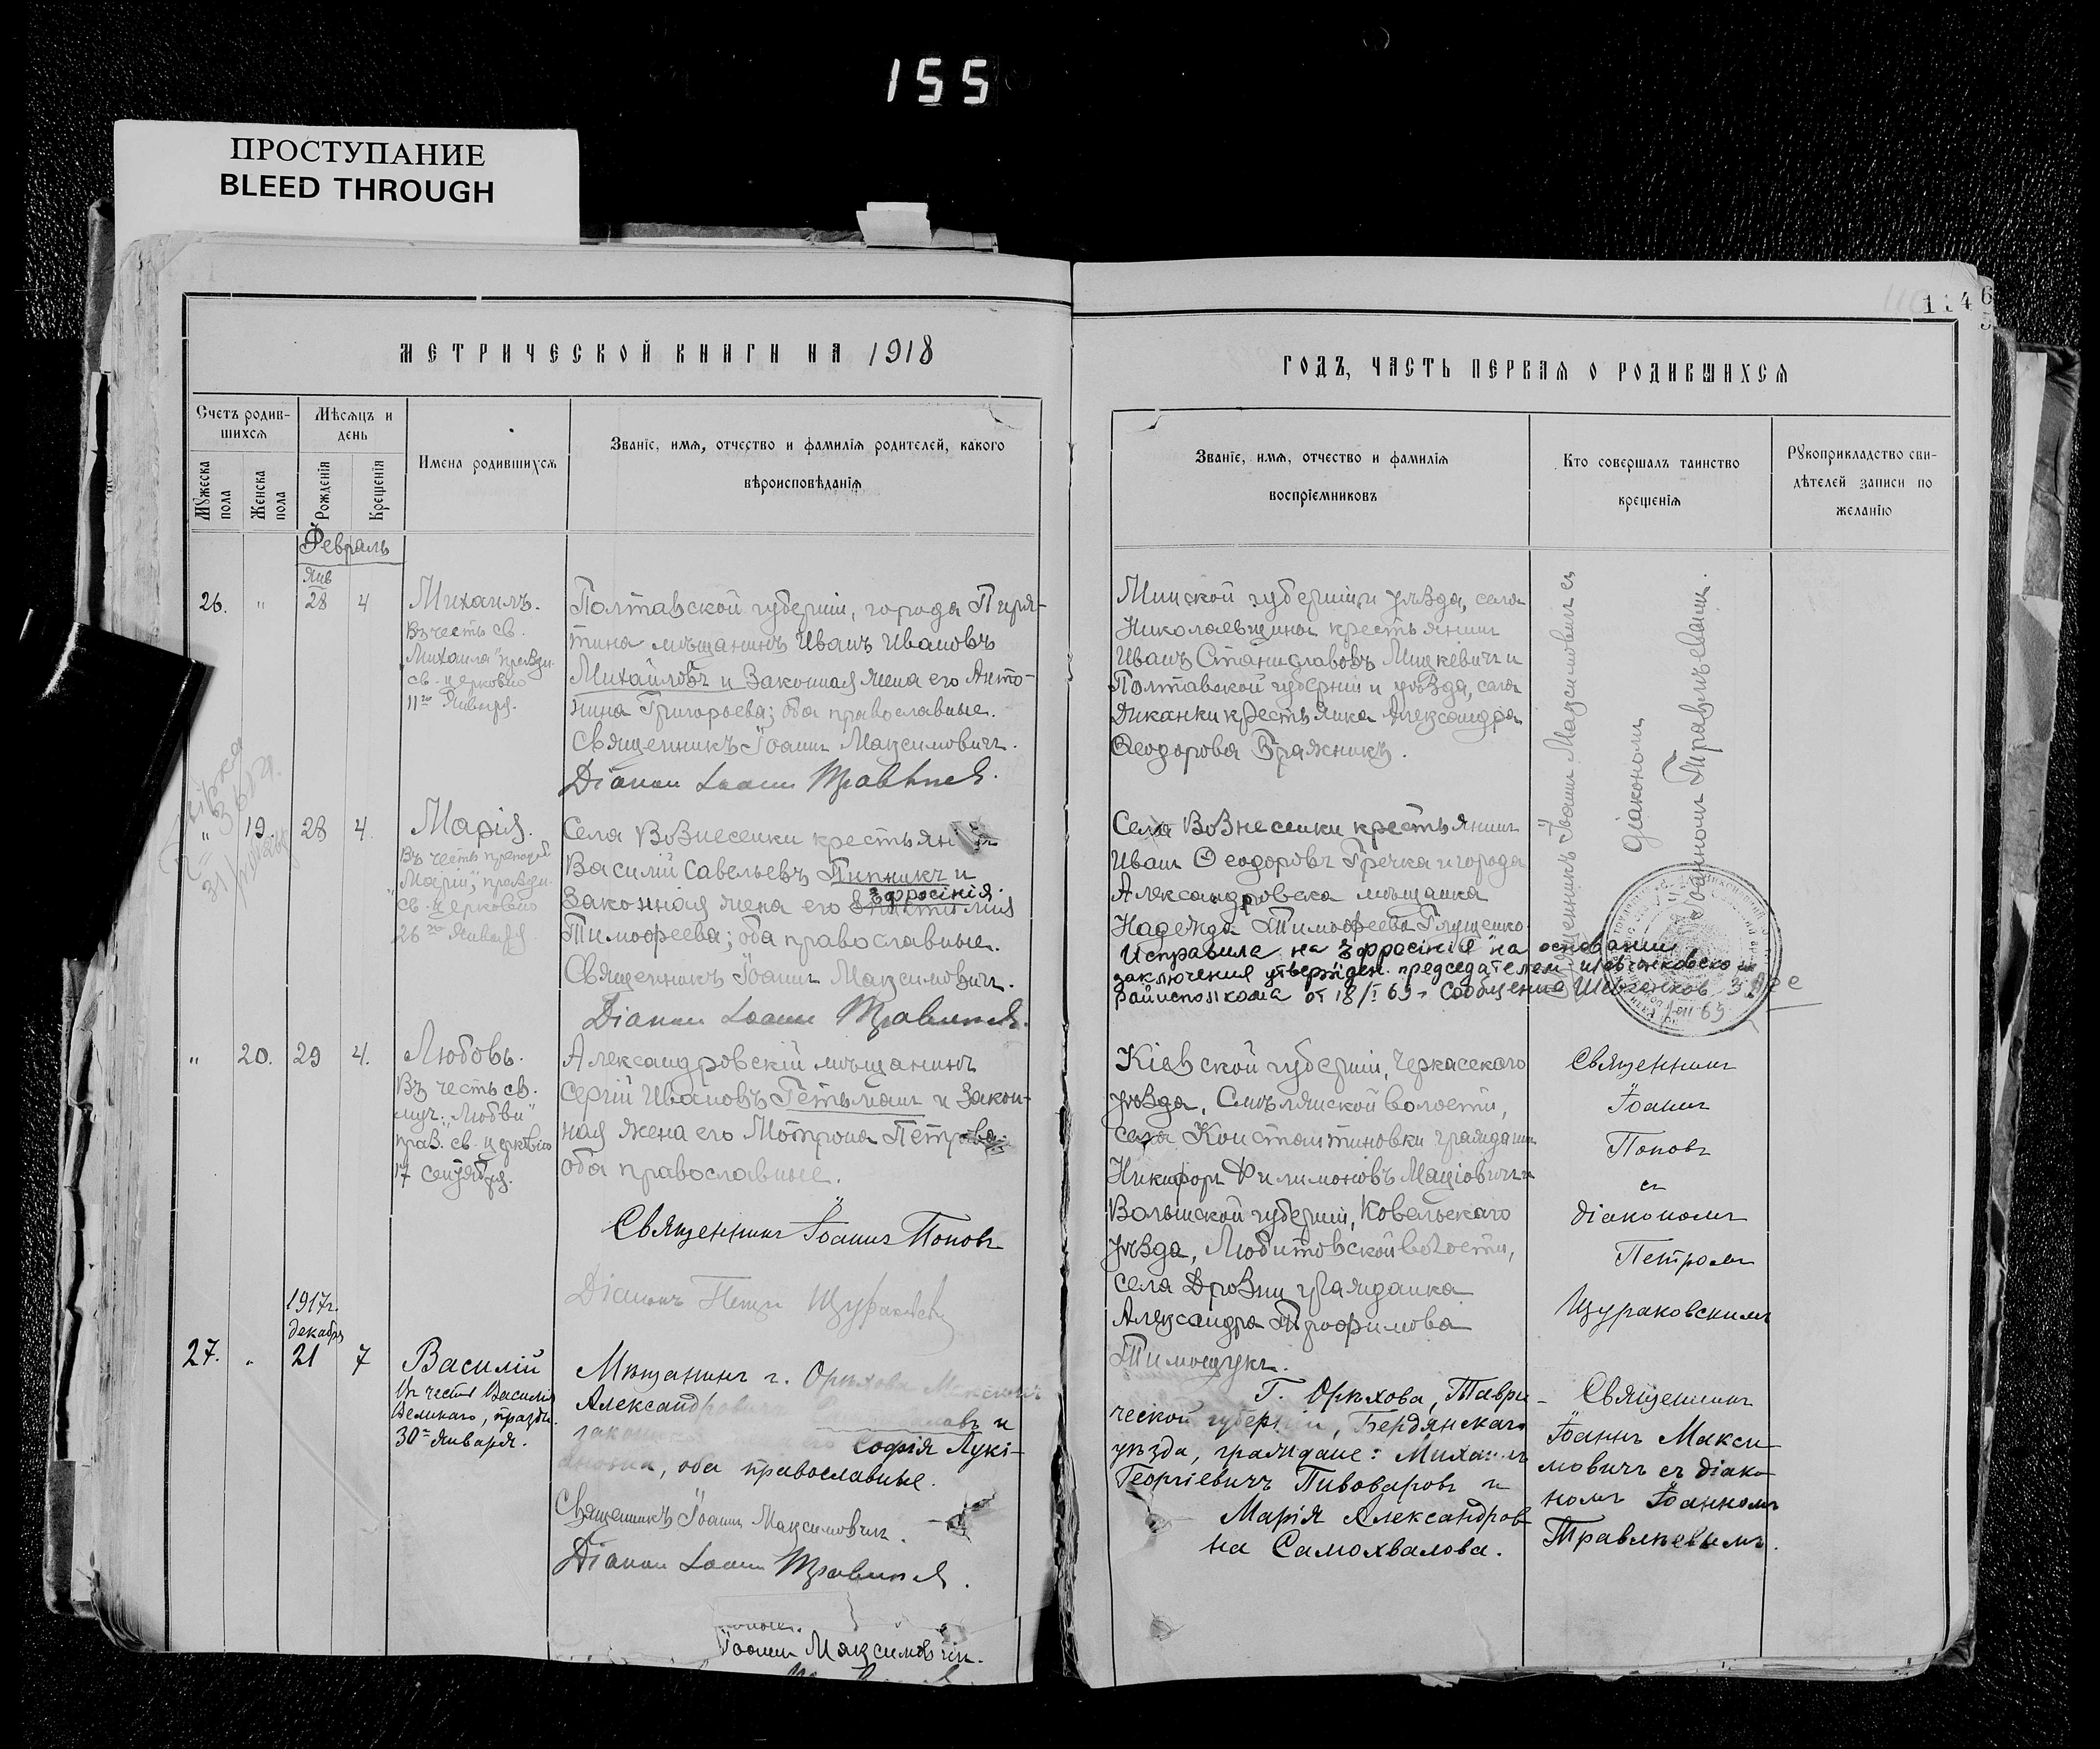 155
ПРОСТУПАНИЕ
BLEED THROUGH
МЕТРИЧЕСКОЙ КНИГИ НА 1918
Счетъ родив-
шихся
Мѣсяцъ и
день
Мужеска
пола
Женска
пола
Рожденія
Крещенія
Имена родившихся
Званіе, имя, отчество и фамилія родителей, какого
вѣроисповѣданія
Февраль
Янв
26. " 28 4
Михаилъ.
Въ честь св.
Михаила" праздн.
св. церковію
11го Января.
Полтавской губерніи, города Пиря-
тина мѣщанинъ Иванъ Ивановъ
Михайловъ и законная жена его Анто-
нина Григорьева; оба православные.
Священникъ Іоаннъ Максимовичъ.
Діаконъ Іоаннъ Травлѣевъ.
" 19. 28 4.
Марія.
Въ честь препод.
Маріи", праздн.
св. церковію
26го Января
Села Вознесенки крестьянинъ
Василій Савельевъ Пипникъ и
Эфросінія
законная жена его
Тимофеева; оба православные.
Священникъ Іоаннъ Максимовичъ.
Діаконъ Іоаннъ Травлѣевъ.
" 20. 29 4.
Любовь.
Въ честь св.
муч. „Любви"
праз. св. церковію
17 сентября.
Александровскій мѣщанинъ
Сергій Ивановъ Гетьманъ и закон-
ная жена его Мотрона Петрова
оба православные.
Священникъ Іоаннъ Поповъ
Діаконъ Петръ Щураковскій
1917г.
декабрь
27. " 21 7
Василій
Въ честь Василія
Великаго, праздн.
30го января.
Мѣщанинъ г. Орѣхова
Александровичъ и
законная его Софія Лукі-
оба православные.
Священникъ Іоаннъ Максимовичъ.
Діаконъ Іоаннъ Травлѣевъ.
Іоаннъ Максимовичъ.
ГОДЪ, ЧАСТЬ ПЕРВАЯ О РОДИВШИХСЯ
Званіе, имя, отчество и фамилія
воспріемниковъ
Кто совершалъ таинство
крещенія
Рукоприкладство сви-
дѣтелей записи по
желанію
Минской губерніи и уѣзда, села
Николаевщины крестьянинъ
Иванъ Станиславовъ Мицкевичъ и
Полтавской губерніи и уѣзда, села
Диканки крестьянка Александра
Ѳеодорова Бражникъ.
Священникъ Іоаннъ Максимовичъ съ
діакономъ
Іоанномъ Травлѣевымъ.
Села Вознесенки крестьянинъ
Иванъ Ѳеодоровъ Гречка и города
Александровска мѣщанка
Надежда Тимофеева Глущенко.
Исправила на Эфросінія" на основании
заключения утвержден. председателем Шевченковского
райисполкома от 18/I 69 г Сообщение Шевченков. ЗАГС
Кіевской губерніи, Черкасскаго
уѣзда, Смѣлянской волости,
села Константиновки гражданинъ
Никифоръ Филимоновъ Маціовичъ и
Волынской губерніи, Ковельскаго
уѣзда, Любитовской волости,
села Дрозни гражданка
Александра Трофимова
Тимощукъ.
Священникъ
Іоаннъ
Поповъ
съ
діакономъ
Петромъ
Щураковскимъ
Г. Орѣхова, Таври-
ческой губерніи, Бердянскаго
уѣзда, граждане: Михаилъ
Георгіевичъ Пивоваровъ и
Марія Александров
на Самохвалова.
Священникъ
Іоаннъ Макси-
мовичъ съ діако-
номъ Іоанномъ
Травлѣевымъ.